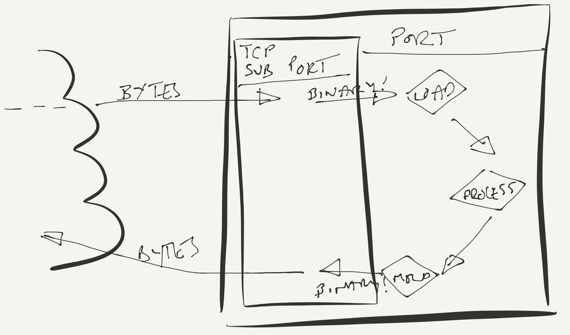 PORT
TCP
SUB PORT
BYTES
BINARY!
LOAD
PROCESS
BYTES
BINARY!
MOLD